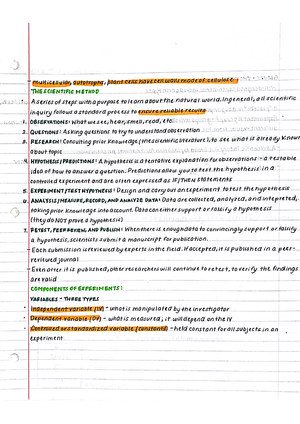 - multicellular, autotrophs, plant cells have cell walls made of cellulose
THE SCIENTIFIC METHOD
A series of steps with a purpose to learn about the natural world. In general, all scientific
inquiry follows a standard process to ensure reliable results
1. OBSERVATIONS: What we see, hear, smell, read, etc.
2. QUESTIONS: Asking questions to try to understand observation
3. RESEARCH: Consulting prior knowledge (the scientific literature), to see what is already known
about topic
4. HYPOTHESIS/PREDICTIONS: A hypothesis is a tentative explanation for observations - a testable
idea of how to answer a question. Predictions allow you to test the hypothesis in a
controlled experiment and are often expressed as IF/THEN statements
5. EXPERIMENT/TEST HYPOTHESIS: Design and carry out an experiment to test the hypothesis
6. ANALYSIS/MEASURE, RECORD, AND ANALYZE DATA: Data are collected, analyzed, and interpreted,
taking prior knowledge into account. Data can either support or falsify a hypothesis
(they do NOT prove a hypothesis)
7. RETEST, PEER REVIEW, AND PUBLISH: When there is enough data to convincingly support or falsify
a hypothesis, scientists submit a manuscript for publication.
- Each submission is reviewed by experts in the field. If accepted, it is published in a peer-
reviewed journal
- Even after it is published, other researchers will continue to retest, to verify the findings
are valid
COMPONENTS OF EXPERIMENTS:
VARIABLES - THREE TYPES
- Independent variable (IV) - what is manipulated by the investigator
- Dependent variable (DV) - what is measured; it will depend on the IV
- Controlled or standardized variable (constants) - held constant for all subjects in an
experiment